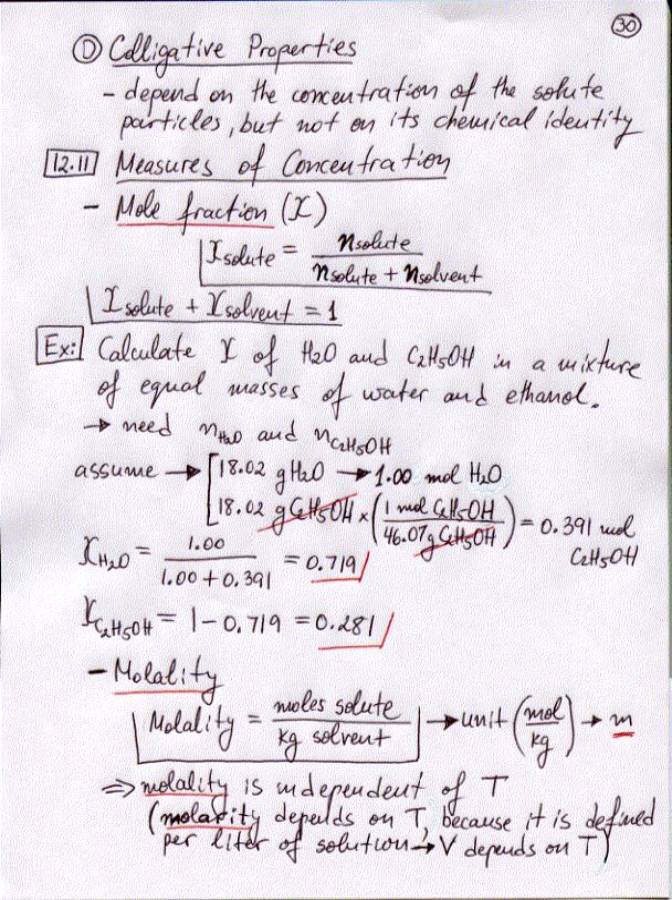 30
D Colligative Properties
- depend on the concentration of the solute
particles, but not on its chemical identity
12.11 Measures of Concentration
- Mole fraction (X)
Xsolute = nsolute / nsolute + nsolvent
Xsolute + Xsolvent = 1
Ex: Calculate X of H2O and C2H5OH in a mixture
of equal masses of water and ethanol.
→ need nH2O and nC2H5OH
assume → [18.02 g H2O → 1.00 mol H2O
18.02 g C2H5OH × (1 mol C2H5OH / 46.07 g C2H5OH) = 0.391 mol
C2H5OH
XH2O = 1.00 / 1.00 + 0.391 = 0.719
XC2H5OH = 1 - 0.719 = 0.281
- Molality
Molality = moles solute / kg solvent → unit (mol / kg) → m
⇒ molality is independent of T
(molarity depends on T, because it is defined
per liter of solution → V depends on T)